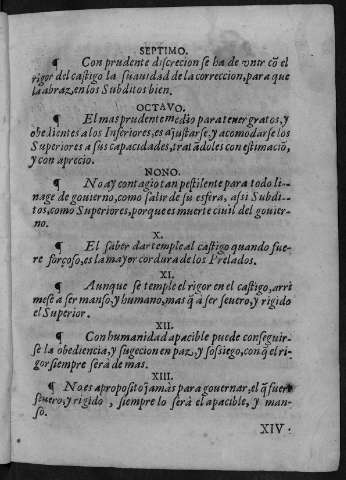 SEPTIMO.
¶ Con prudente discrecion se ha de vnir cõ el
rigor del castigo la suauidad de la correccion, para que
la abraz, en los Subditos bien.
OCTAVO.
¶ El mas prudente medio para tener gratos, y
obedientes a los Inferiores, es ajustarse, y acomodarse los
Superiores a sus capacidades, tratãdoles con estimaciõ,
y con aprecio.
NONO.
¶ No ay contagio tan pestilente para todo li--
nage de gouierno, como salir de su esfira, assi Subdi--
tos, como Superiores, porque es muerte ciuil del gouier-
no.
X.
¶ El saber dar temple al castigo quando fue-
re forçoso, es la mayor cordura de los Prelados.
XI.
¶ Aunque se temple el rigor en el castigo, arri
mese à ser manso, y humano, mas q̃ à ser seuero, y rigido
el Superior.
XII.
¶ Con humanidad apacible puede conseguir-
se la obediencia, y sugecion en paz, y sossiego, con q̃ el ri-
gor siempre serà de mas.
XIII.
¶ No es aproposito jamàs para governar, el q̃ fuere
seuero, y rigido, siempre lo serà el apacible, y man-
so.
XIV.